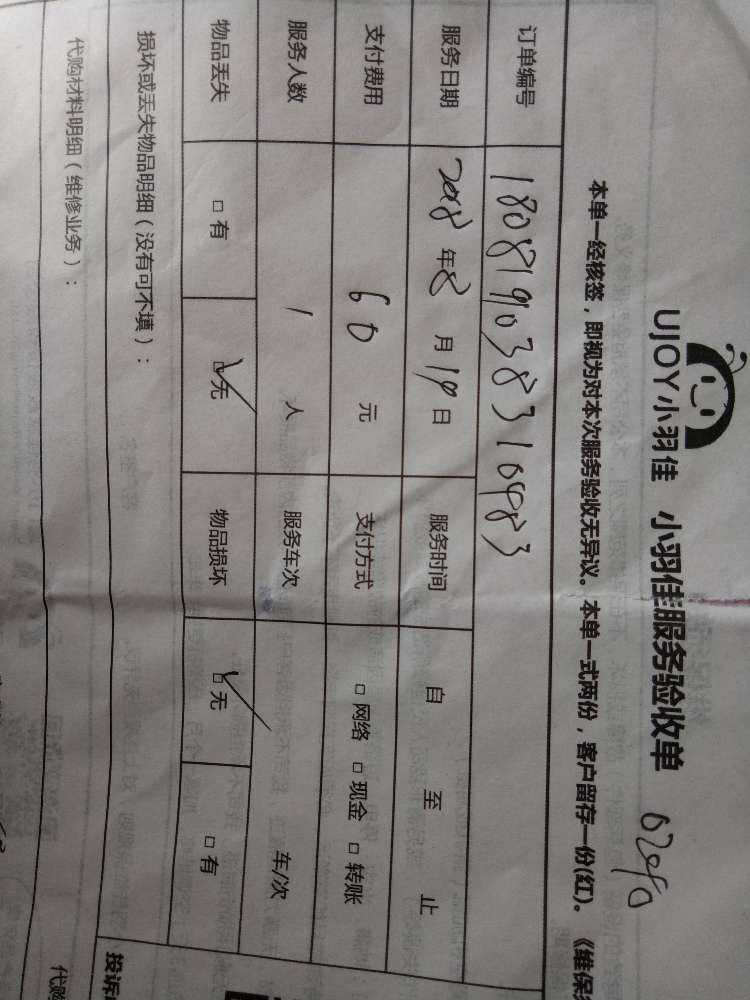 UJOY小羽佳 小羽佳服务验收单
本单一经核签,即视为对本次服务验收无异议。本单一式两份,客户留存一份(红)。《维保
订单编号 180819038310483
服务日期 2018年8月19日 服务时间 自 至 止
支付费用 60元 支付方式 □网络 □现金 □转账
服务人数 1人 服务车次 车/次
物品丢失 □有 ☑无 物品损坏 ☑无 □有
损坏或丢失物品明细(没有可不填):
投诉
代购材料明细(维修业务): 代购